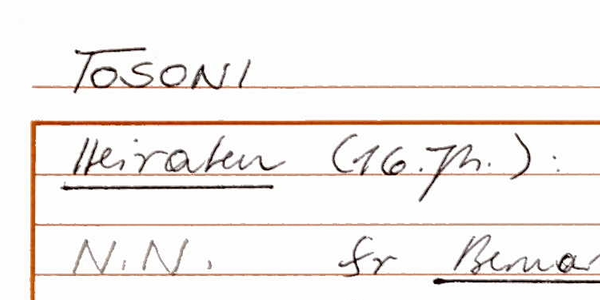 TOSONI
Heiraten (16. Jh.):
N.N. fr